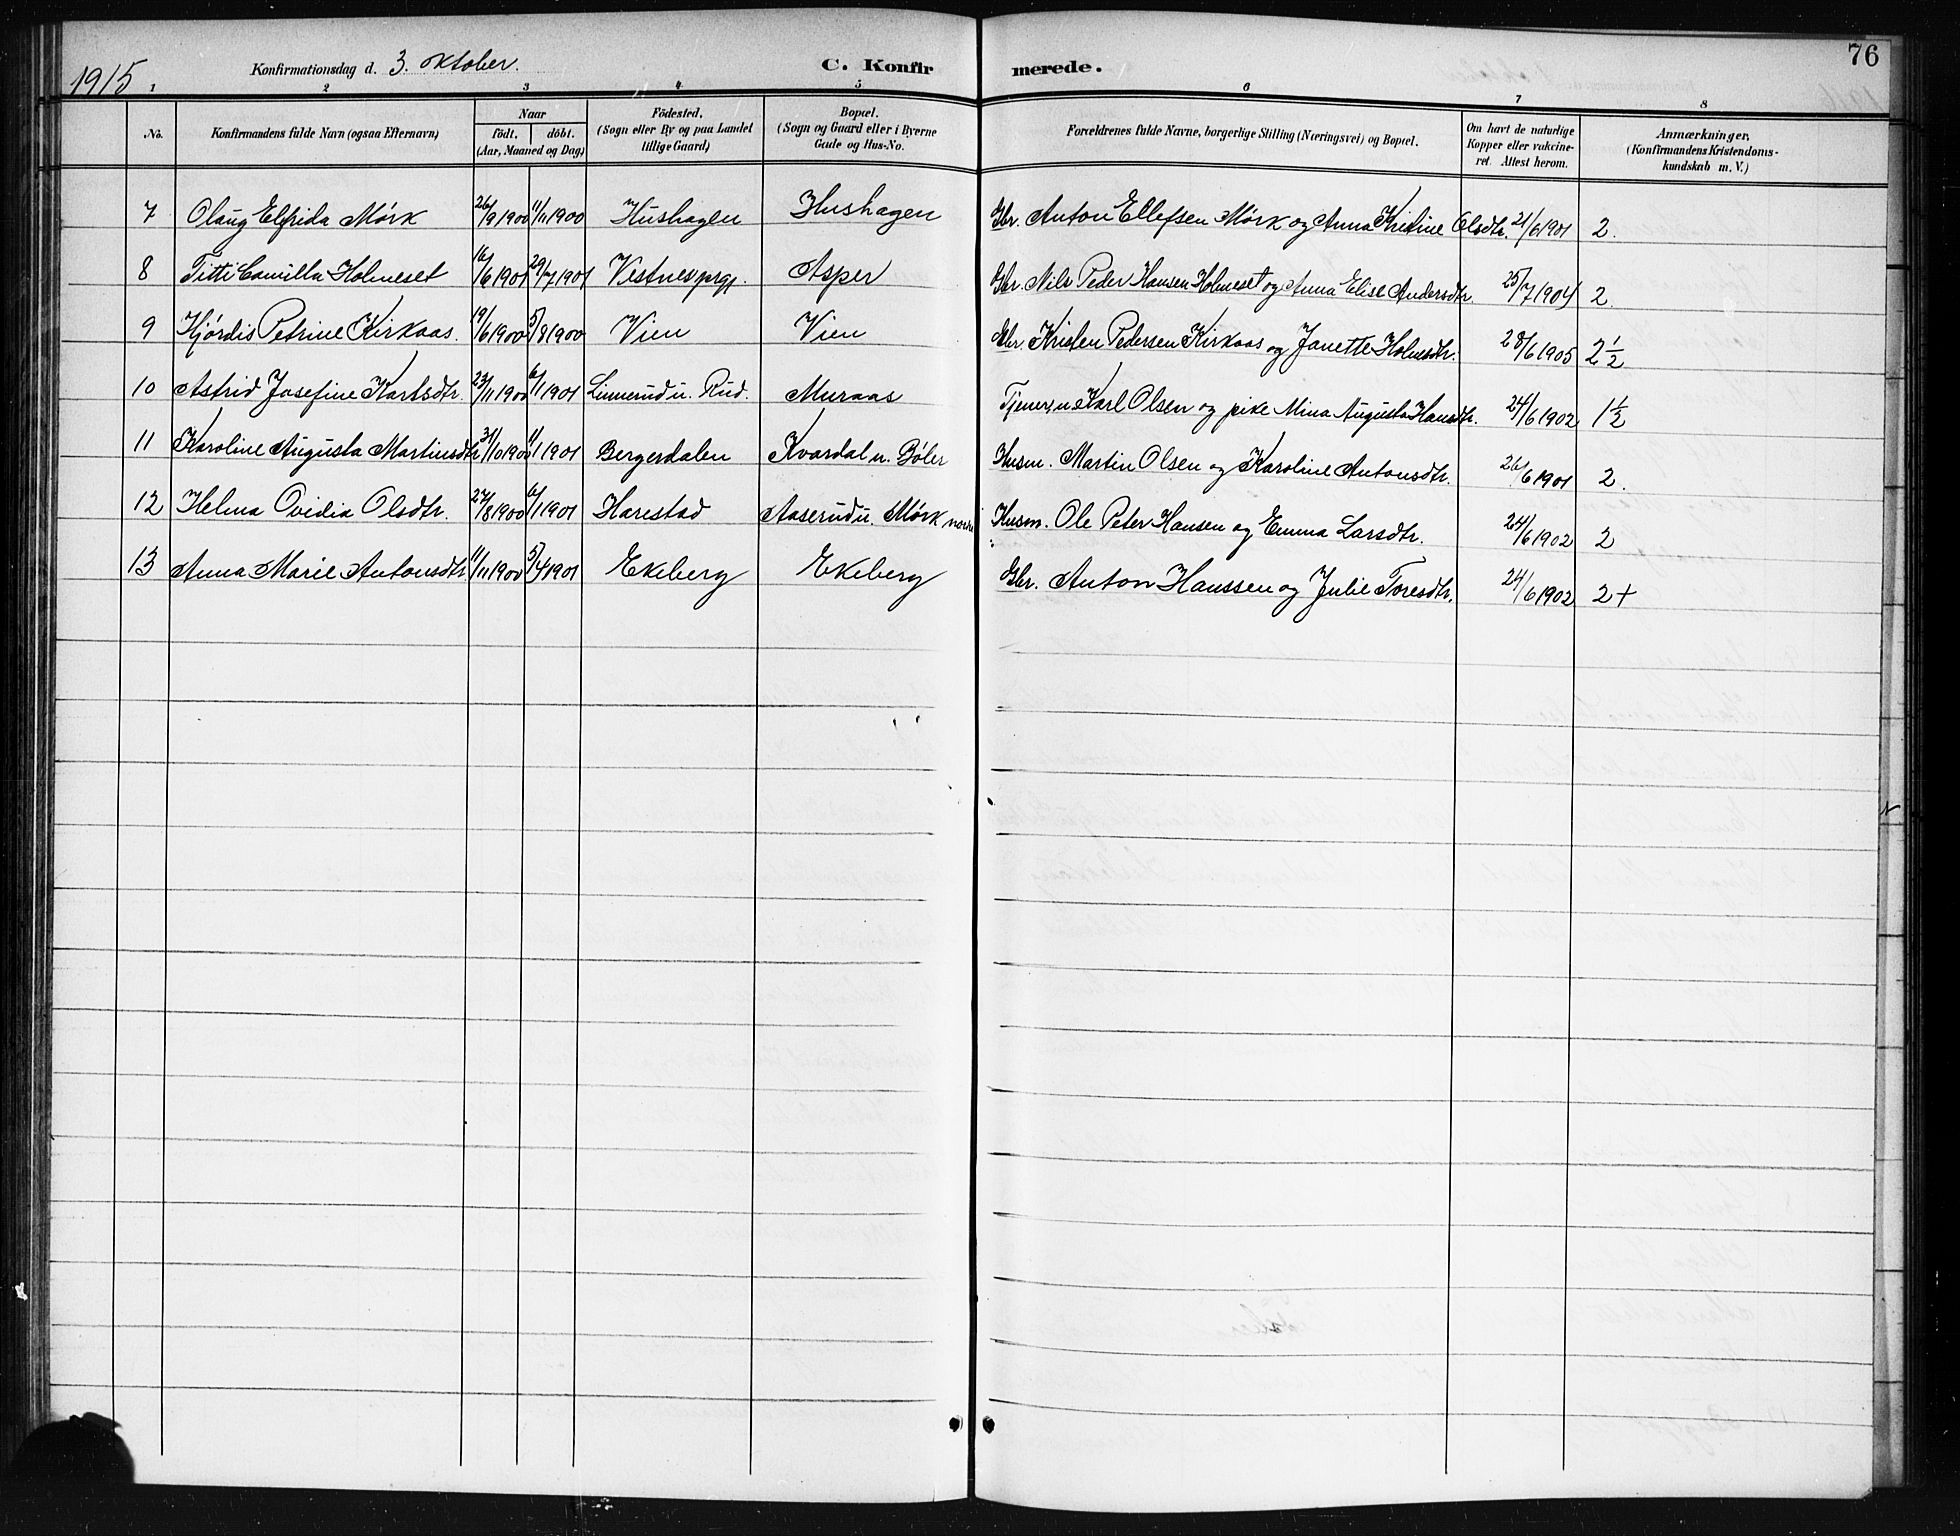 76
1915. Konfirmationsdag d. 3. oktober. C. Konfir merede.
1 2 3 4 5 6 7 8
No. Konfirmandens fulde Navn (ogsaa Efternavn) Naar født, døbt. (Aar, Maaned og Dag) Fødested, (Sogn eller By og paa Landet tillige Gaard) Bopæl. (Sogn og Gaard eller i Byerne Gade og Hus-No. Forældrenes fulde Navne, borgerlige Stilling (Næringsvei) og Bopæl. Om havt de naturlige Kopper eller vakcineret. Attest herom. Anmærkninger, (Konfirmandens Kristendomskundskab m. V.)
7 Olaug Elfrida Mørk 26/9 1900 11/11 1900 Hushagen Hushagen Gbr. Anton Ellefsen Mørk og Anna Kristine Olsdtr. 21/6 1901 2.
8 Titti Camilla Holmeset 16/6 1901 29/7 1901 Vestnes prgj. Asper Gbr. Nils Peder Hansen Holmeset og Anna Elise Andersdtr. 25/7 1904 2
9 Hjørdis Petrine Kirkaas. 19/6 1900 5/8 1900 Vien Vien Gbr. Kristen Pedersen Kirkaas og Janette Holmsdtr. 28/6 1905 2 1/2
10 Astrid Josefine Karlsdtr. 23/11 1900 6/1 1901 Linnerud u. Rud. Muraas Tjener, u. Karl Olsen og pike Mina Augusta Hansdtr. 24/6 1902 1 1/2
11 Karoline Augusta Martinsdtr. 31/10 1900 1/1 1901 Bergerdalen Kvardal u. Bøler Husm. Martin Olsen og Karoline Antonsdtr. 26/6 1901 2.
12 Helma Ovidia Olsdtr. 27/8 1900 6/1 1901 Harestad Aaserud u. Mørk Husm. Ole Peter Hansen og Emma Larsdtr. 24/6 1902 2
13 Anna Marie Antonsdtr. 11/11 1900 5/4 1901 Ekeberg Ekeberg Gbr. Anton Hanssen og Julie Toresdtr. 24/6 1902 2+